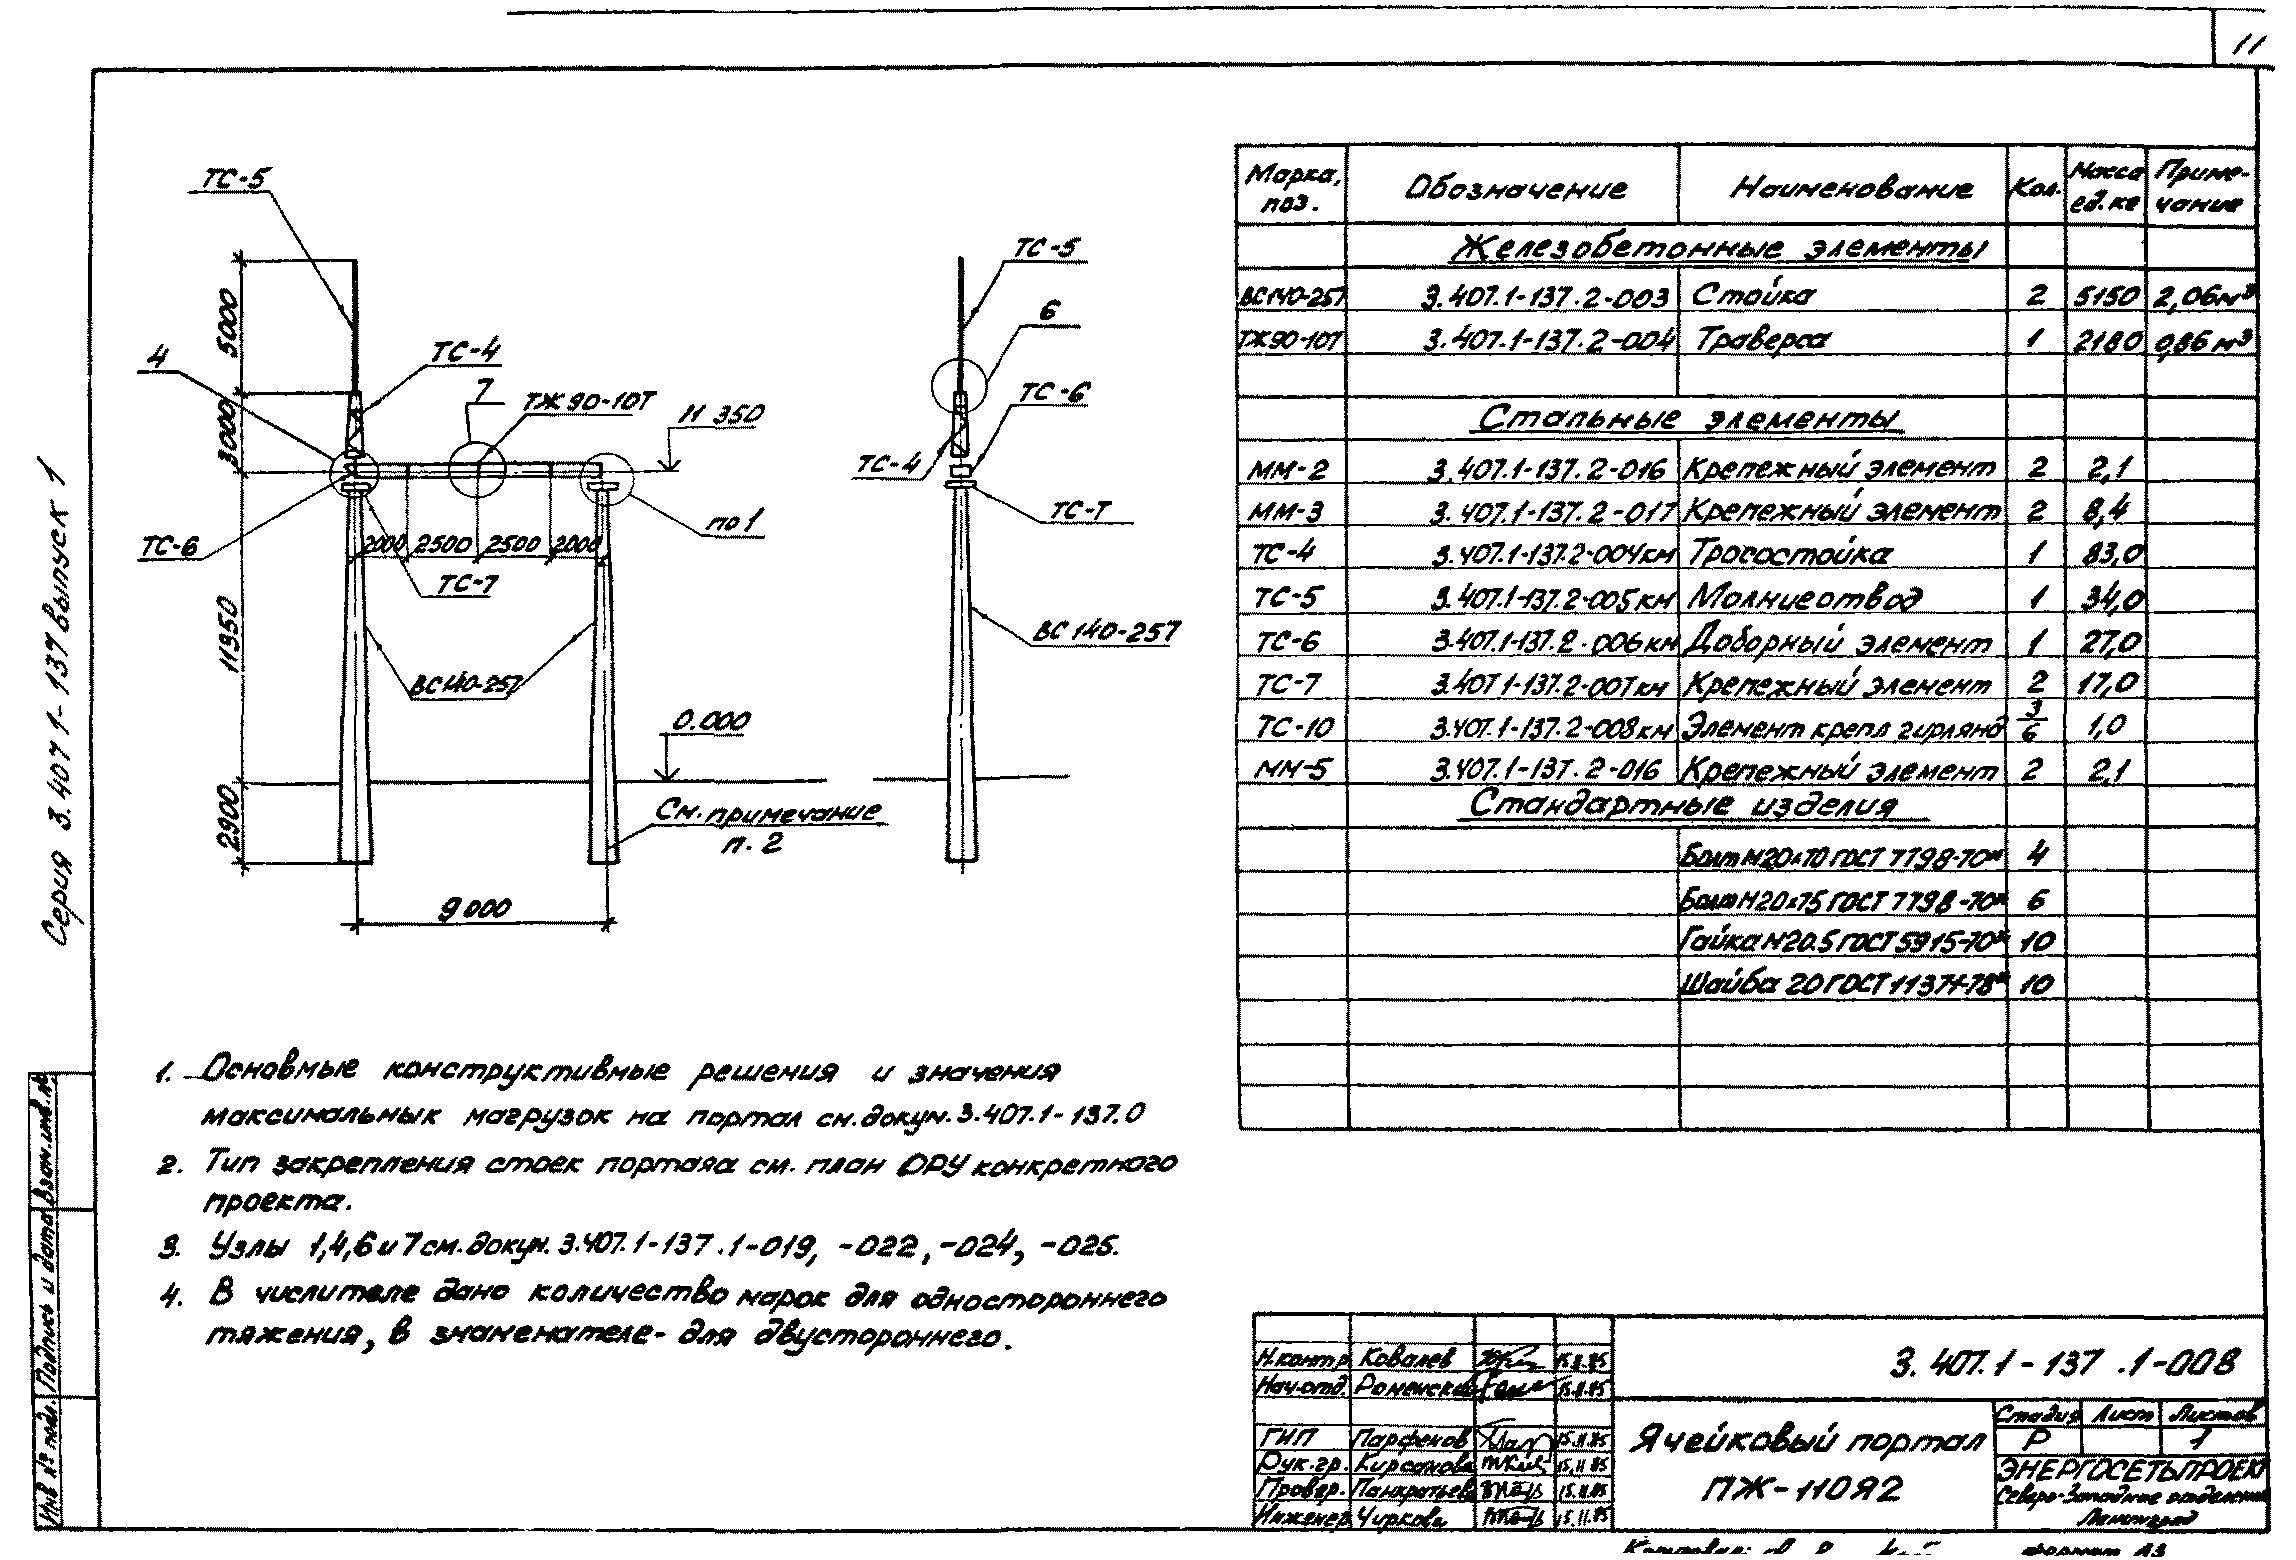 11
ТС-5
5000
4
ТС-4
7
ТЖ90-10Т
11 350
3000
по 1
ТС-6
2000 2500 2500 2000
ТС-7
11350
ВС140-257
0.000
2900
См. примечание
п. 2
9000
ТС-5
6
ТС-6
ТС-4
ТС-7
ВС 140-257
Серия 3.407 1-137 выпуск 1
Марка, поз. Обозначение Наименование Кол. Масса ед. кг Приме-чание
Железобетонные элементы
ВС140-257 3.407.1-137.2-003 Стойка 2 5150 2,06м³
ТЖ90-10Т 3.407.1-137.2-004 Траверса 1 2180 0,86м³
Стальные элементы
ММ-2 3.407.1-137.2-016 Крепежный элемент 2 2,1
ММ-3 3.407.1-137.2-017 Крепежный элемент 2 8,4
ТС-4 3.407.1-137.2-004км Тросостойка 1 83,0
ТС-5 3.407.1-137.2-005км Молниеотвод 1 34,0
ТС-6 3.407.1-137.2-006км Доборный элемент 1 27,0
ТС-7 3.407 1-137.2-007км Крепежный элемент 2 17,0
ТС-10 3.407.1-137.2-008км Элемент крепл гирлянд 3/6 1,0
ММ-5 3.407.1-137.2-016 Крепежный элемент 2 2,1
Стандартные изделия
Болт М20х70 ГОСТ 7798-70* 4
Болт М20х75 ГОСТ 7798-70* 6
Гайка М20.5 ГОСТ 5915-70* 10
Шайба 20 ГОСТ 11371-78* 10
1. Основные конструктивные решения и значения
максимальных нагрузок на портал см. докум. 3.407.1-137.0
2. Тип закрепления стоек портала см. план ОРУ конкретного
проекта.
3. Узлы 1,4,6 и 7 см. докум. 3.407.1-137.1-019, -022, -024, -025.
4. В числителе дано количество марок для одностороннего
тяжения, в знаменателе - для двустороннего.
Взам. инв. №
Подпись и дата
Инв № подл.
Н.контр Ковалев 15.11.85
Нач.отд. Роменский 15.11.85
ГИП Парфенов 15.11.85
Рук.гр. Кирсанова 15.11.85
Провер. Панкратьева 15.11.85
Инженер Чиркова 15.11.85
3.407.1-137.1-008
Ячейковый портал
ПЖ-110Я2
Стадия Лист Листов
Р 1
ЭНЕРГОСЕТЬПРОЕКТ
Северо-Западное отделение
Ленинград
Формат А3